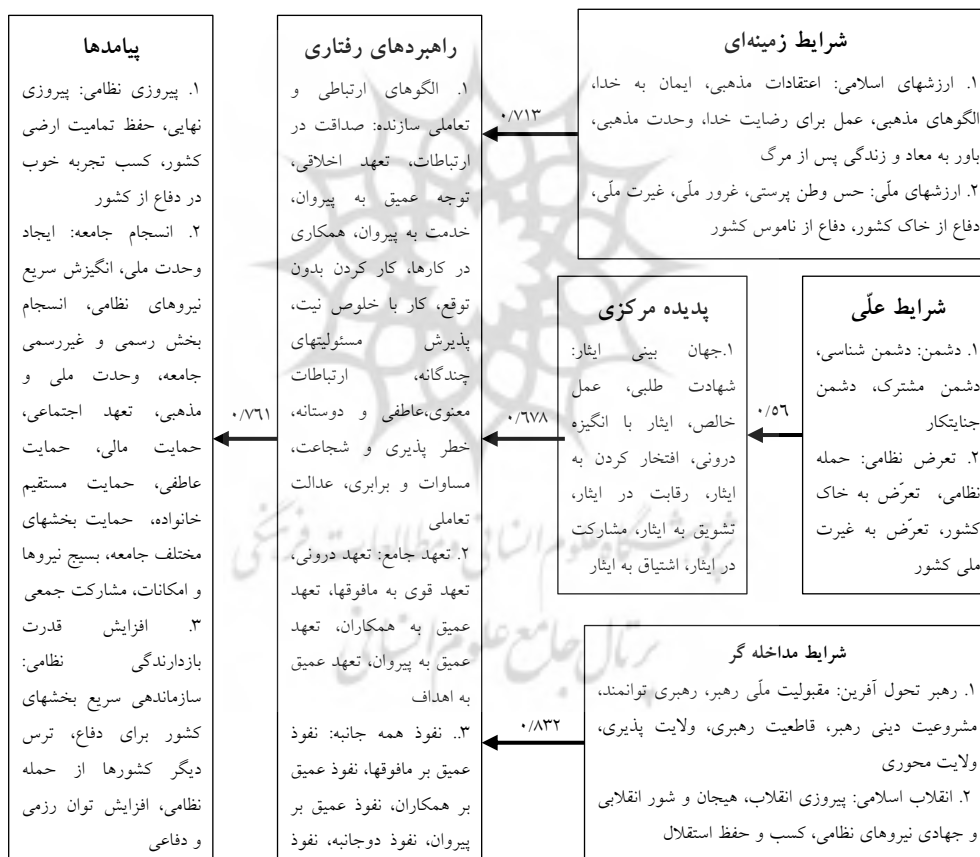 شرایط زمینه‌ای
۱. ارزشهای اسلامی: اعتقادات مذهبی، ایمان به خدا،
الگوهای مذهبی، عمل برای رضایت خدا، وحدت مذهبی،
باور به معاد و زندگی پس از مرگ
۲. ارزشهای ملّی: حس وطن پرستی، غرور ملّی، غیرت ملّی،
دفاع از خاک کشور، دفاع از ناموس کشور
شرایط علّی
۱. دشمن: دشمن شناسی،
دشمن مشترک، دشمن
جنایتکار
۲. تعرض نظامی: حمله
نظامی، تعرّض به خاک
کشور، تعرّض به غیرت
ملی کشور
۰/۵۶
پدیده مرکزی
۱.جهان بینی ایثار:
شهادت طلبی، عمل
خالص، ایثار با انگیزه
درونی، افتخار کردن به
ایثار، رقابت در ایثار،
تشویق به ایثار، مشارکت
در ایثار، اشتیاق به ایثار
شرایط مداخله گر
۱. رهبر تحول آفرین: مقبولیت ملّی رهبر، رهبری توانمند،
مشروعیت دینی رهبر، قاطعیت رهبری، ولایت پذیری،
ولایت محوری
۲. انقلاب اسلامی: پیروزی انقلاب، هیجان و شور انقلابی
و جهادی نیروهای نظامی، کسب و حفظ استقلال
۰/۷۱۳
۰/۶۷۸
۰/۸۳۲
راهبردهای رفتاری
۱. الگوهای ارتباطی و
تعاملی سازنده: صداقت در
ارتباطات، تعهد اخلاقی،
توجه عمیق به پیروان،
خدمت به پیروان، همکاری
در کارها، کار کردن بدون
توقع، کار با خلوص نیت،
پذیرش مسئولیتهای
چندگانه، ارتباطات
معنوی،عاطفی و دوستانه،
خطر پذیری و شجاعت،
مساوات و برابری، عدالت
تعاملی
۲. تعهد جامع: تعهد درونی،
تعهد قوی به مافوقها، تعهد
عمیق به همکاران، تعهد
عمیق به پیروان، تعهد عمیق
به اهداف
۳.. نفوذ همه جانبه: نفوذ
عمیق بر مافوقها، نفوذ عمیق
بر همکاران، نفوذ عمیق بر
پیروان، نفوذ دوجانبه، نفوذ
۰/۷۶۱
پیامدها
۱. پیروزی نظامی: پیروزی
نهایی، حفظ تمامیت ارضی
کشور، کسب تجربه خوب
در دفاع از کشور
۲. انسجام جامعه: ایجاد
وحدت ملی، انگیزش سریع
نیروهای نظامی، انسجام
بخش رسمی و غیررسمی
جامعه، وحدت ملی و
مذهبی، تعهد اجتماعی،
حمایت مالی، حمایت
عاطفی، حمایت مستقیم
خانواده، حمایت بخشهای
مختلف جامعه، بسیج نیروها
و امکانات، مشارکت جمعی
۳. افزایش قدرت
بازدارندگی نظامی:
سازماندهی سریع بخشهای
کشور برای دفاع، ترس
دیگر کشورها از حمله
نظامی، افزایش توان رزمی
و دفاعی
پژوهشگاه علوم انسانی و مطالعات فرهنگی
پرتال جامع علوم انسانی